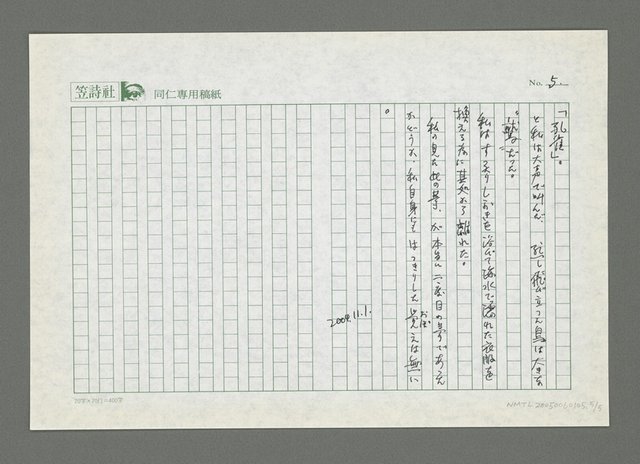 笠詩社
同仁専用稿紙
No. 5.
「孔雀」。
と私は大声で叫んだ。 飛び立った鳥は大きな
鷲だった。
私はすっかりしぶきを浴びて海水で濡れた衣服を
換える為に其処から離れた。
私の見た此の夢、が本当に二度目の夢であった
かどうか、私自身にもはっきりした覚えは無い
。
おぼ
2004.11.1.
20字×20行=400字
NMTL20050060105 5/5